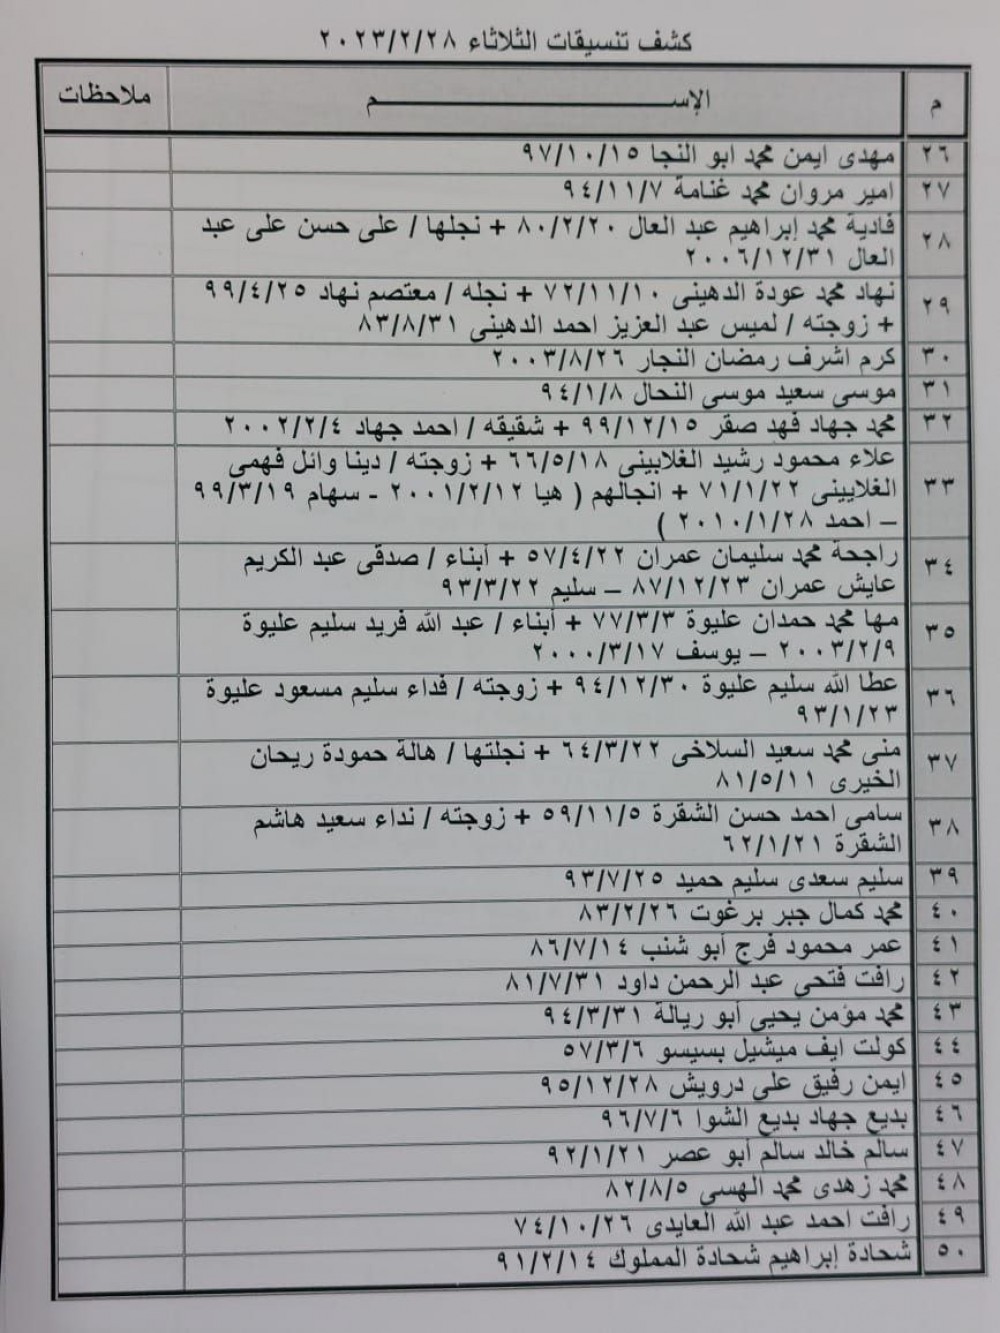 كشف تنسيقات الثلاثاء ٢٠٢٣/٢/٢٨
م الإســـــــــم ملاحظات
٢٦ مهدى ايمن محمد ابو النجا ٩٧/١٠/١٥
٢٧ امير مروان محمد غنامة ٩٤/١١/٧
٢٨ فادية محمد إبراهيم عبد العال ٨٠/٢/٢٠ + نجلها / على حسن على عبد
العال ٢٠٠٦/١٢/٣١
٢٩ نهاد محمد عودة الدهينى ٧٢/١١/١٠ + نجله / معتصم نهاد ٩٩/٤/٢٥
+ زوجته / لميس عبد العزيز احمد الدهينى ٨٣/٨/٣١
٣٠ كرم اشرف رمضان النجار ٢٠٠٣/٨/٢٦
٣١ موسى سعيد موسى النحال ٩٤/١/٨
٣٢ محمد جهاد فهد صقر ٩٩/١٢/١٥ + شقيقه / احمد جهاد ٢٠٠٢/٢/٤
٣٣ علاء محمود رشيد الغلابينى ٦٦/٥/١٨ + زوجته / دينا وائل فهمى
الغلايينى ٧١/١/٢٢ + انجالهم ( هيا ٢٠٠١/٢/١٢ - سهام ٩٩/٣/١٩
– احمد ٢٠١٠/١/٢٨ )
٣٤ راجحة محمد سليمان عمران ٥٧/٤/٢٢ + أبناء / صدقى عبد الكريم
عايش عمران ٨٧/١٢/٢٣ – سليم ٩٣/٣/٢٢
٣٥ مها محمد حمدان عليوة ٧٧/٣/٣ + أبناء / عبد الله فريد سليم عليوة
٢٠٠٣/٢/٩ – يوسف ٢٠٠٠/٣/١٧
٣٦ عطا الله سليم عليوة ٩٤/١٢/٣٠ + زوجته / فداء سليم مسعود عليوة
٩٣/١/٢٣
٣٧ منى محمد سعيد السلاخى ٦٤/٣/٢٢ + نجلتها / هالة حمودة ريحان
الخيرى ٨١/٥/١١
٣٨ سامى احمد حسن الشقرة ٥٩/١١/٥ + زوجته / نداء سعيد هاشم
الشقرة ٦٢/١/٢١
٣٩ سليم سعدى سليم حميد ٩٣/٧/٢٥
٤٠ محمد كمال جبر برغوت ٨٣/٢/٢٦
٤١ عمر محمود فرج أبو شنب ٨٦/٧/١٤
٤٢ رافت فتحى عبد الرحمن داود ٨١/٧/٣١
٤٣ محمد مؤمن يحيى أبو ريالة ٩٤/٣/٣١
٤٤ كولت ايف ميشيل بسيسو ٥٧/٣/٦
٤٥ ايمن رفيق على درويش ٩٥/١٢/٢٨
٤٦ بديع جهاد بديع الشوا ٩٦/٧/٦
٤٧ سالم خالد سالم أبو عصر ٩٢/١/٢١
٤٨ محمد زهدى محمد الهسي ٨٢/٨/٥
٤٩ رافت احمد عبد الله العايدى ٧٤/١٠/٢٦
٥٠ شحادة إبراهيم شحادة المملوك ٩١/٢/١٤